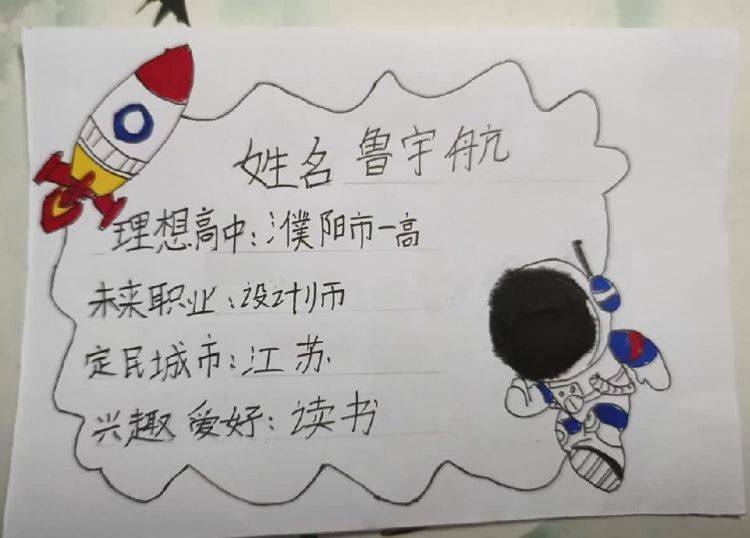 姓名 鲁宇航
理想高中:濮阳市一高
未来职业:设计师
定民城市:江苏
兴趣爱好:读书